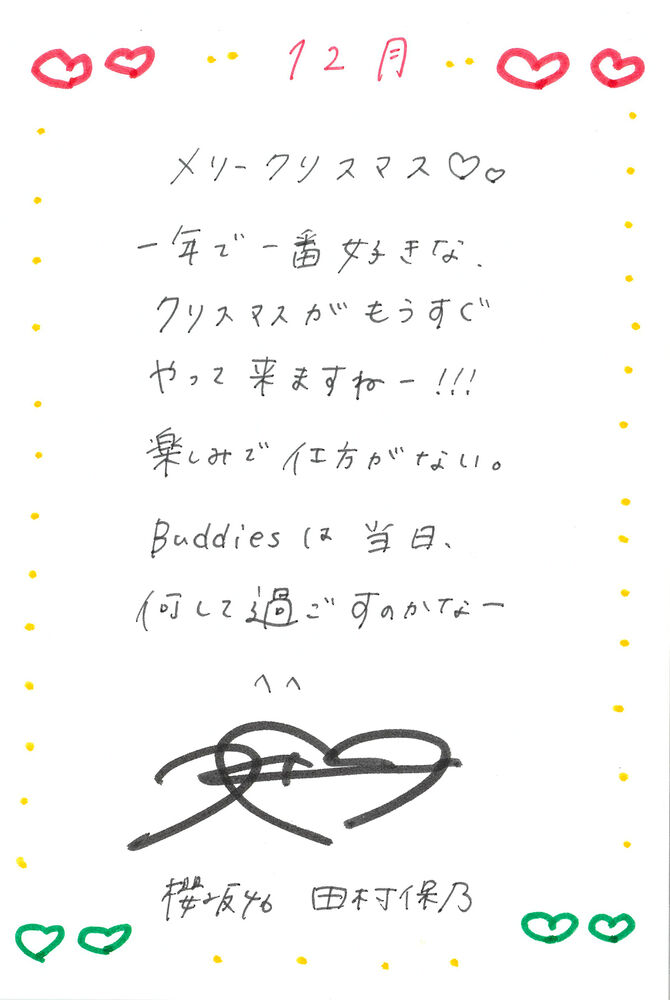 12月
メリークリスマス♡♡
一年で一番好きな、
クリスマスがもうすぐ
やって来ますねー!!!
楽しみで仕方がない。
Buddiesは当日、
何して過ごすのかなー
^^
櫻坂46 田村保乃